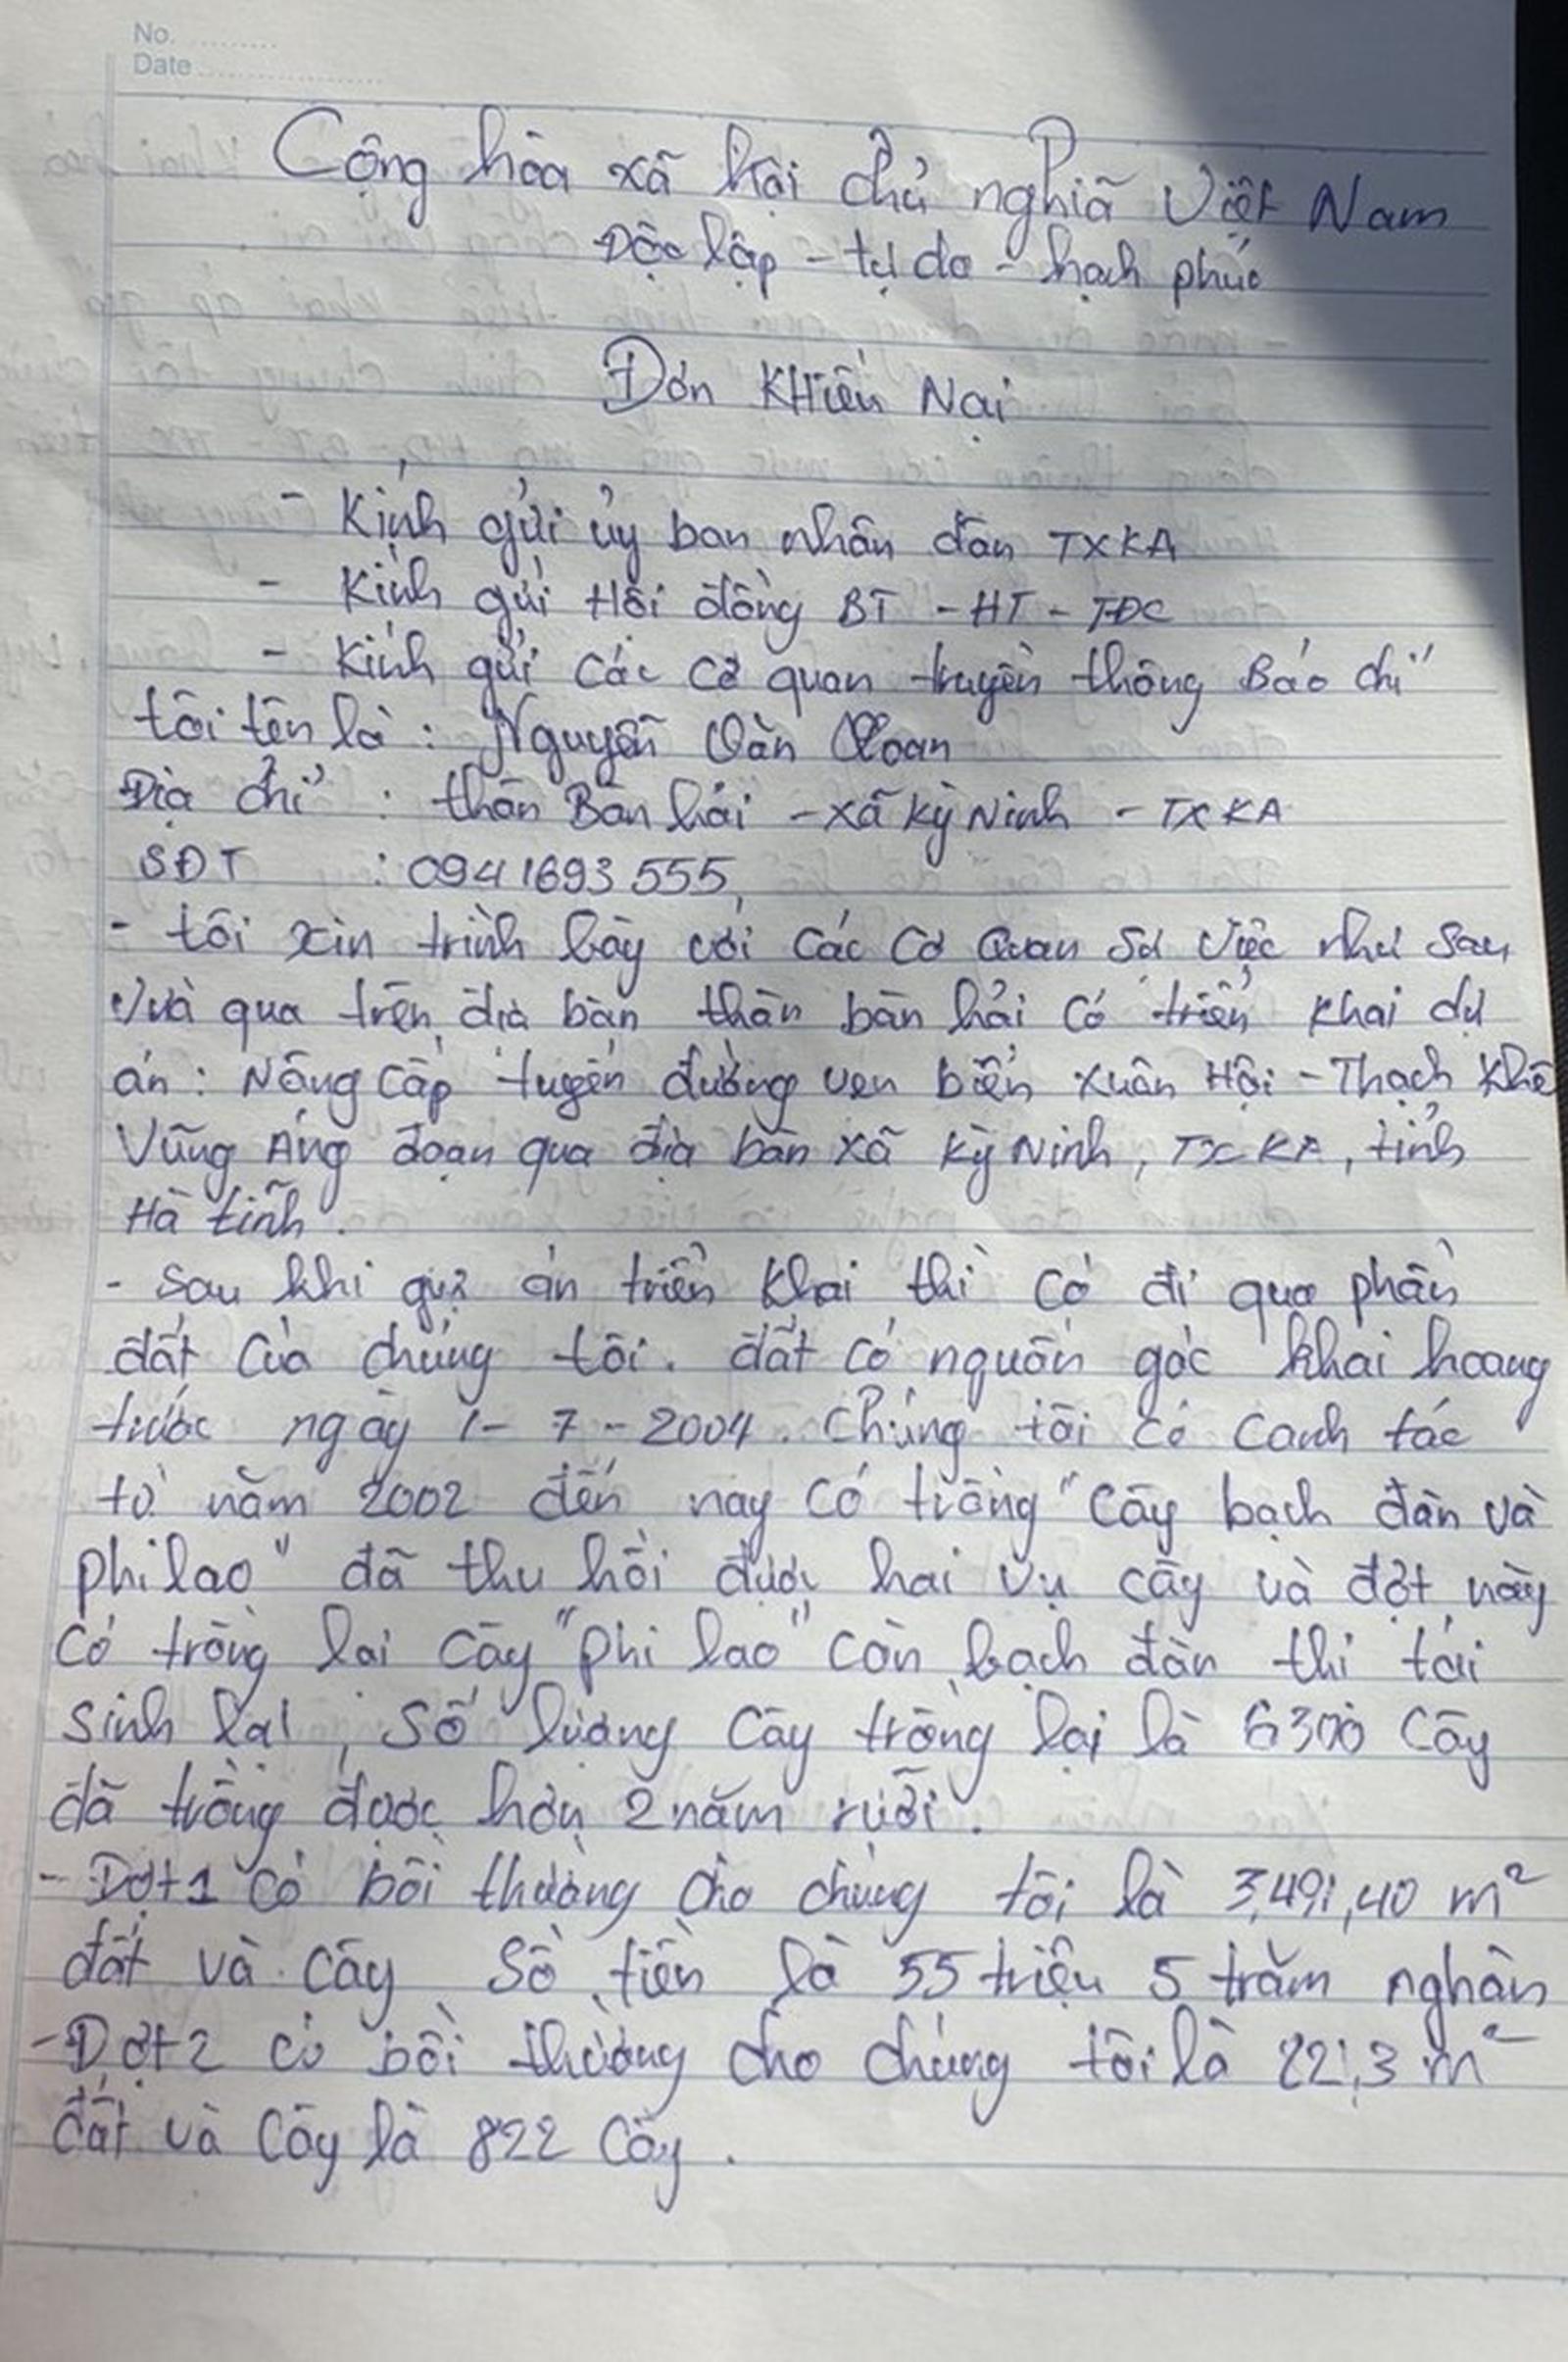 No. ..........
Date ....................
Cộng hòa xã hội chủ nghĩa Việt Nam
Độc lập - tự do - hạnh phúc
Đơn KHiếu Nại
- Kính gửi ủy ban nhân dân TXKA
- Kính gửi Hội đồng BT - HT - TĐC
- Kính gửi Các Cơ quan truyền thông Báo chí
tôi tên là : Nguyễn Văn Xoan
Địa chỉ : thôn Bàn hải - xã Kỳ Ninh - TX KA
SĐT : 0941693555,
- tôi xin trình bày với Các Cơ Quan Sự Việc như Sau
Vừa qua trên địa bàn thôn bàn hải Có triển khai dự
án : Nâng Cấp tuyến đường ven biển Xuân Hội - Thạch Khê
Vũng Áng đoạn qua địa bàn xã Kỳ Ninh, TX KA, tỉnh
Hà tĩnh.
- Sau khi dự án triển Khai thì Có đi qua phần
đất Của chúng tôi. đất Có nguồn gốc khai hoang
trước ngày 1 - 7 - 2004. Chúng tôi Có Canh tác
từ năm 2002 đến nay Có trồng "Cây bạch đàn và
phi lao" đã thu hồi được hai vụ cây và đợt này
Có trồng lại Cây "phi lao" Còn bạch đàn thì tái
Sinh lại, Số lượng Cây trồng lại là 6300 Cây
đã trồng được hơn 2 năm rưỡi.
- Đợt 1 Có bồi thường Cho chúng tôi là 3,491,40 m²
đất và Cây Số tiền là 55 triệu 5 trăm nghàn
- Đợt 2 Có bồi thường Cho chúng tôi là 221,3 m²
đất và Cây là 822 Cây.